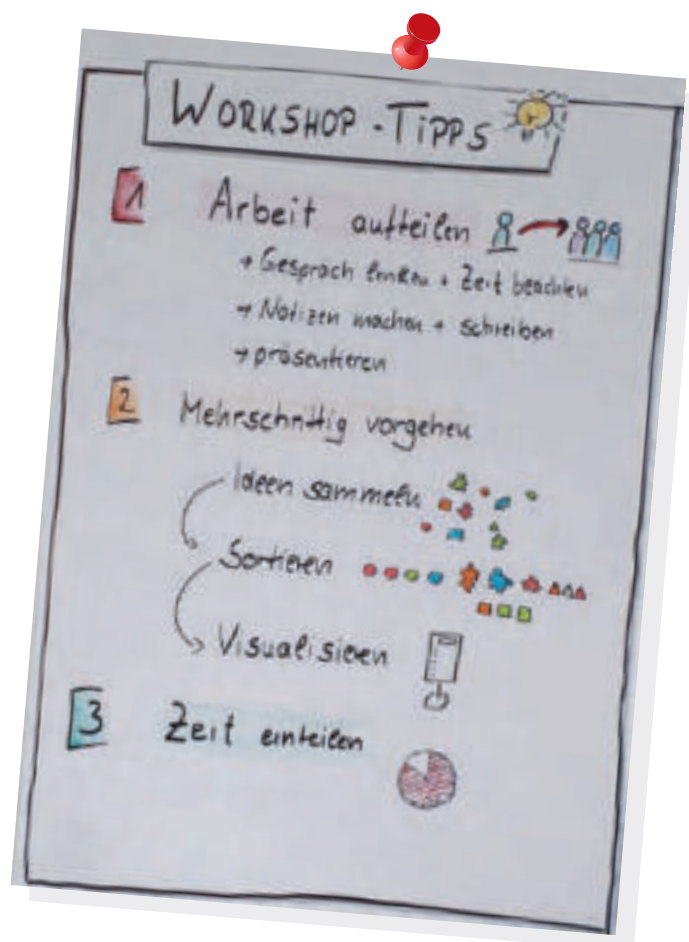 WORKSHOP - TIPPS
1 Arbeit aufteilen
→ Gespräch lenken + Zeit beachten
→ Notizen machen + schreiben
→ präsentieren
2 Mehrschrittig vorgehen
Ideen sammeln
Sortieren
Visualisieren
3 Zeit einteilen